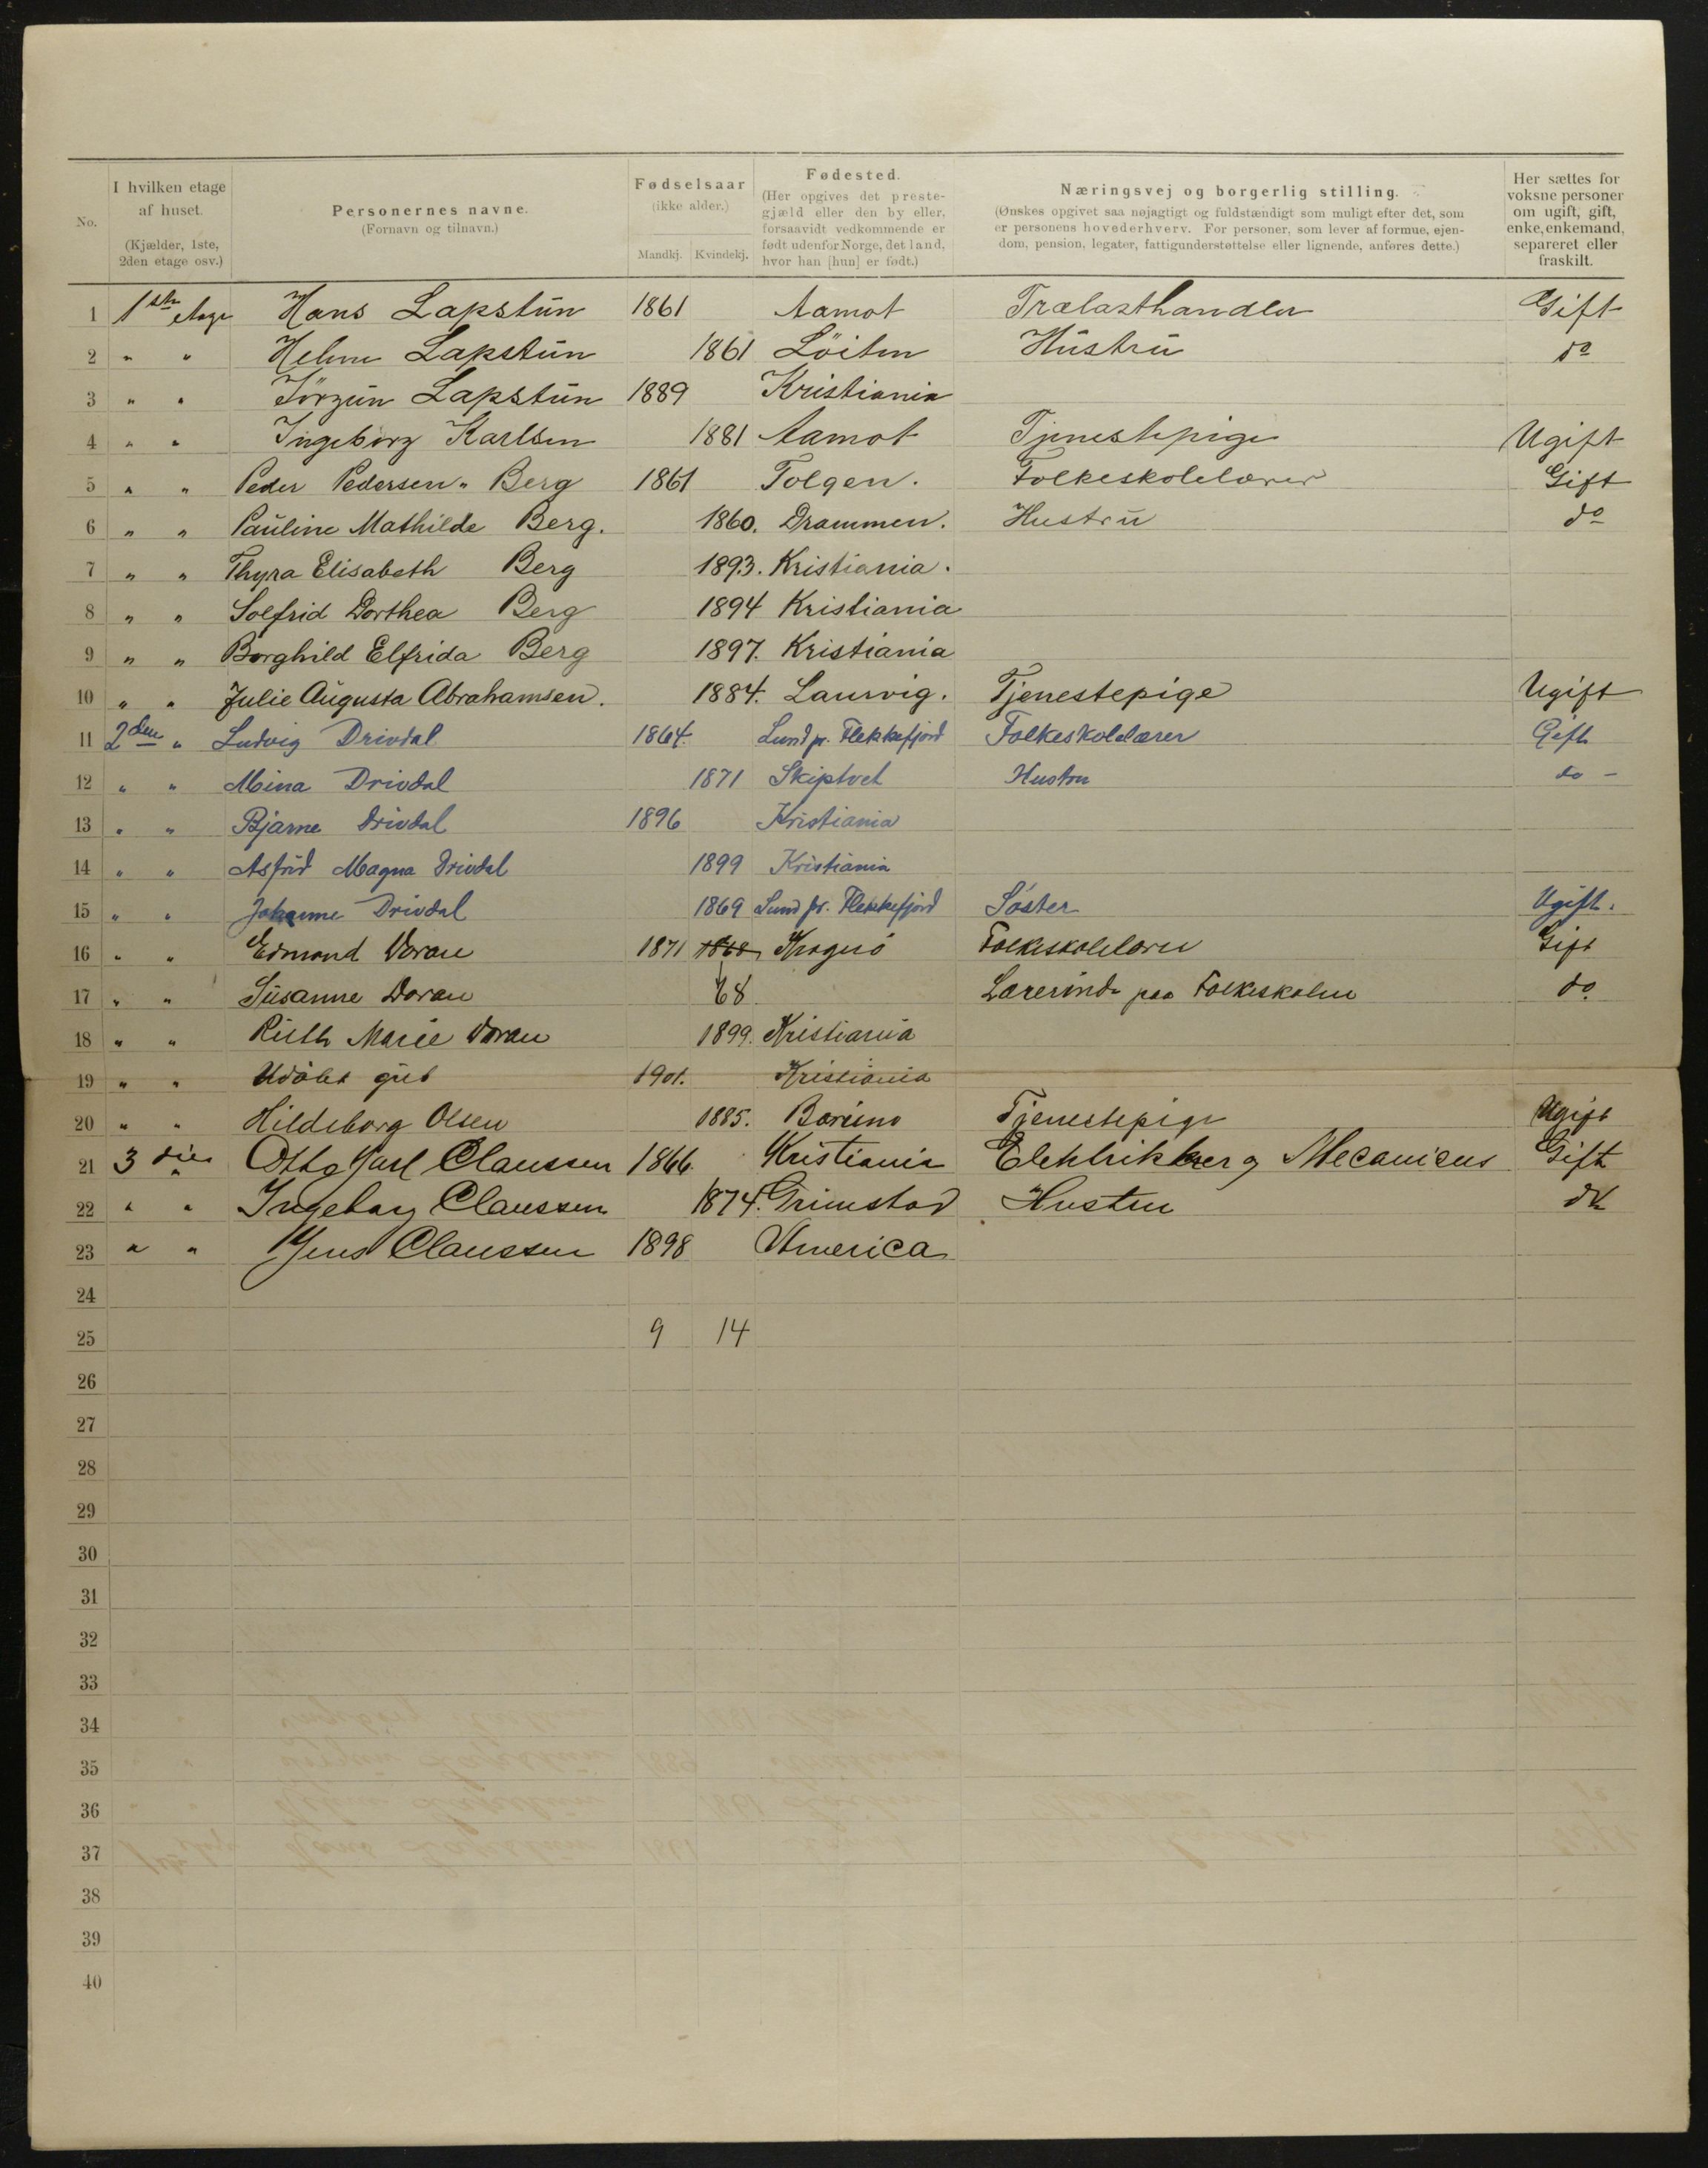 No. | I hvilken etage af huset. (Kjælder, 1ste, 2den etage osv.) | Personernes navne. (Fornavn og tilnavn.) | Fødselsaar (ikke alder.) Mandkj. Kvindekj. | Fødested. (Her opgives det prestegjæld eller den by eller, forsaavidt vedkommende er født udenfor Norge, det land, hvor han [hun] er født.) | Næringsvej og borgerlig stilling. (Ønskes opgivet saa nøjagtigt og fuldstændigt som muligt efter det, som er personens hovederhverv. For personer, som lever af formue, ejendom, pension, legater, fattigunderstøttelse eller lignende, anføres dette.) | Her sættes for voksne personer om ugift, gift, enke, enkemand, separeret eller fraskilt.
1 1ste etage Hans Lapstun 1861 Aamot Trælasthandler Gift
2 " " Helene Lapstun 1861 Löiten Hustru do
3 " " Jörgun Lapstun 1889 Kristiania
4 " " Ingeborg Karlsen 1881 Aamot Tjenestepige Ugift
5 " " Peder Pedersen Berg 1861 Tolgen. Folkeskolelærer Gift
6 " " Pauline Mathilde Berg. 1860. Drammen. Hustru do
7 " " Thyra Elisabeth Berg 1893. Kristiania.
8 " " Solfrid Dorthea Berg 1894 Kristiania
9 " " Borghild Elfrida Berg 1897. Kristiania
10 " " Julie Augusta Abrahamsen. 1884. Laurvig. Tjenestepige Ugift
11 2den " Ludvig Drivdal 1864. Lund pr. Flekkefjord Folkeskolelærer Gift
12 " " Mina Drivdal 1871 Skiptvet Hustru do -
13 " " Bjarne Drivdal 1896 Kristiania
14 " " Asfrid Magna Drivdal 1899 Kristiania
15 " " Johanne Drivdal 1869 Lund pr. Flekkefjord Söster Ugift.
16 " " Edmond Doran 1871 1868 Kragerö Folkeskolelærer Gift
17 " " Susanne Doran 68 Lærerinde paa Folkeskolen do.
18 " " Ruth Marie Doran 1899. Kristiania
19 " " Udöbt gut 1901. Kristiania
20 " " Hildeborg Olsen 1885. Tjenestepige Ugift
21 3die " Otto Karl Claussen 1866. Kristiania Elektrikker og Mecanicus Gift
22 " " Ingeborg Claussen 1874. Grimstad Hustru do
23 " " Jens Claussen 1898 America
24
25 9 14
26
27
28
29
30
31
32
33
34
35
36
37
38
39
40